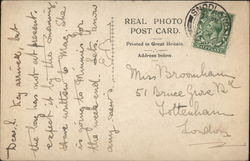 REAL PHOTO
POST CARD.
Printed in Great Britain.
Address below.
Miss Broomham
51 Bruce Grove Rd
Tottenham
London
Dear
Key arrived, but
the bag has not at present.
expect it by the morning
Have written to Mag. She
is going to for
the week end. Let's know
any news.